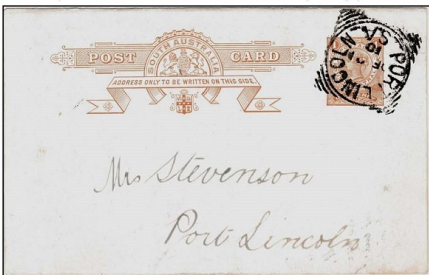 POST CARD
SOUTH AUSTRALIA
ADDRESS ONLY TO BE WRITTEN ON THIS SIDE.
PORT LINCOLN
S.A.
Mrs Stevenson
Port Lincoln